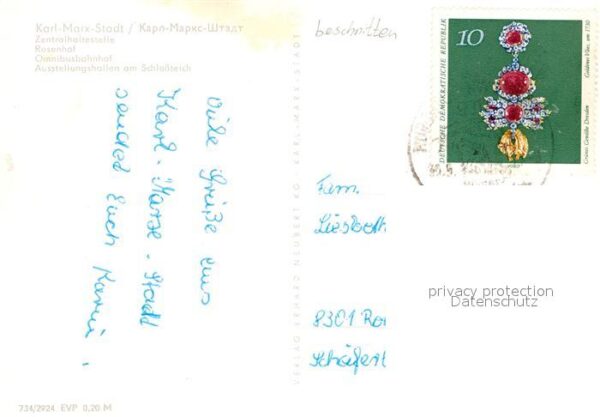 Karl-Marx-Stadt / Карл-Маркс-Штадт
Zentralhaltestelle
Rosenhof
Omnibusbahnhof
Ausstellungshallen am Schloßteich
beschnitten
Viele Grüße aus
Karl-Marx-Stadt
sendet Euch Karin.
VERLAG ERHARD NEUBERT KG · KARL-MARX-STADT
10
DEUTSCHE DEMOKRATISCHE REPUBLIK
Goldenes Vlies, um 1730
Grünes Gewölbe Dresden
Fam.
Liesbeth
privacy protection
Datenschutz
8301
734/2924 EVP 0,20 M